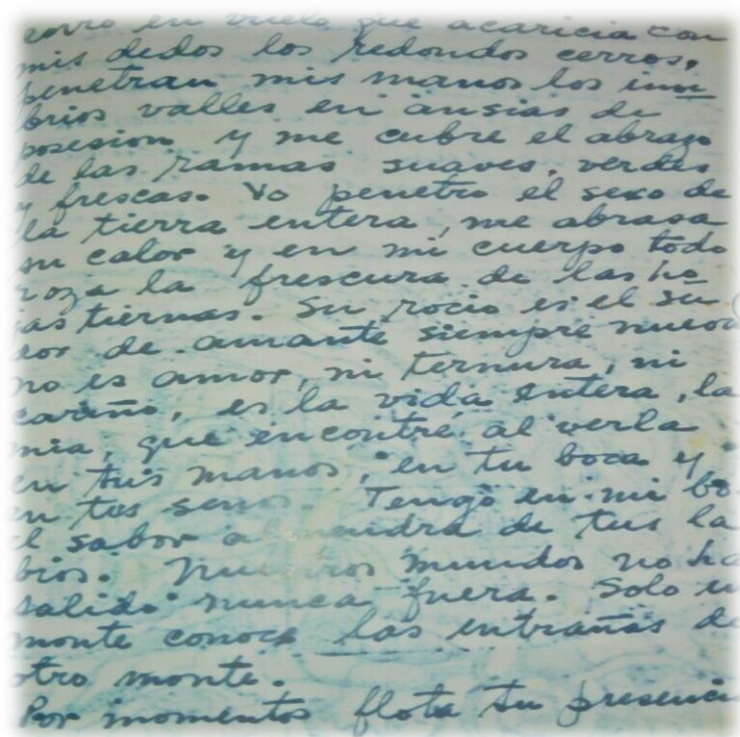 corro en vuelo que acaricia con
mis dedos los redondos cerros,
penetran mis manos los um
brios valles en ansias de
posesion y me cubre el abrazo
de las ramas suaves, verdes
y frescas. Yo penetro el sexo de
la tierra entera, me abrasa
su calor y en mi cuerpo todo
roza la frescura de las ho
jas tiernas. Su rocio es el su
dor de amante siempre nuevo
no es amor, ni ternura, ni
cariño, es la vida entera, la
mia, que encontré al verla
en tus manos, en tu boca y
en tus senos. Tengo en mi bo
el sabor almendra de tus la
bios. Nuestros mundos no ha
salido nunca fuera. Solo u
monte conoce las entrañas de
otro monte.
Por momentos flota tu presenci